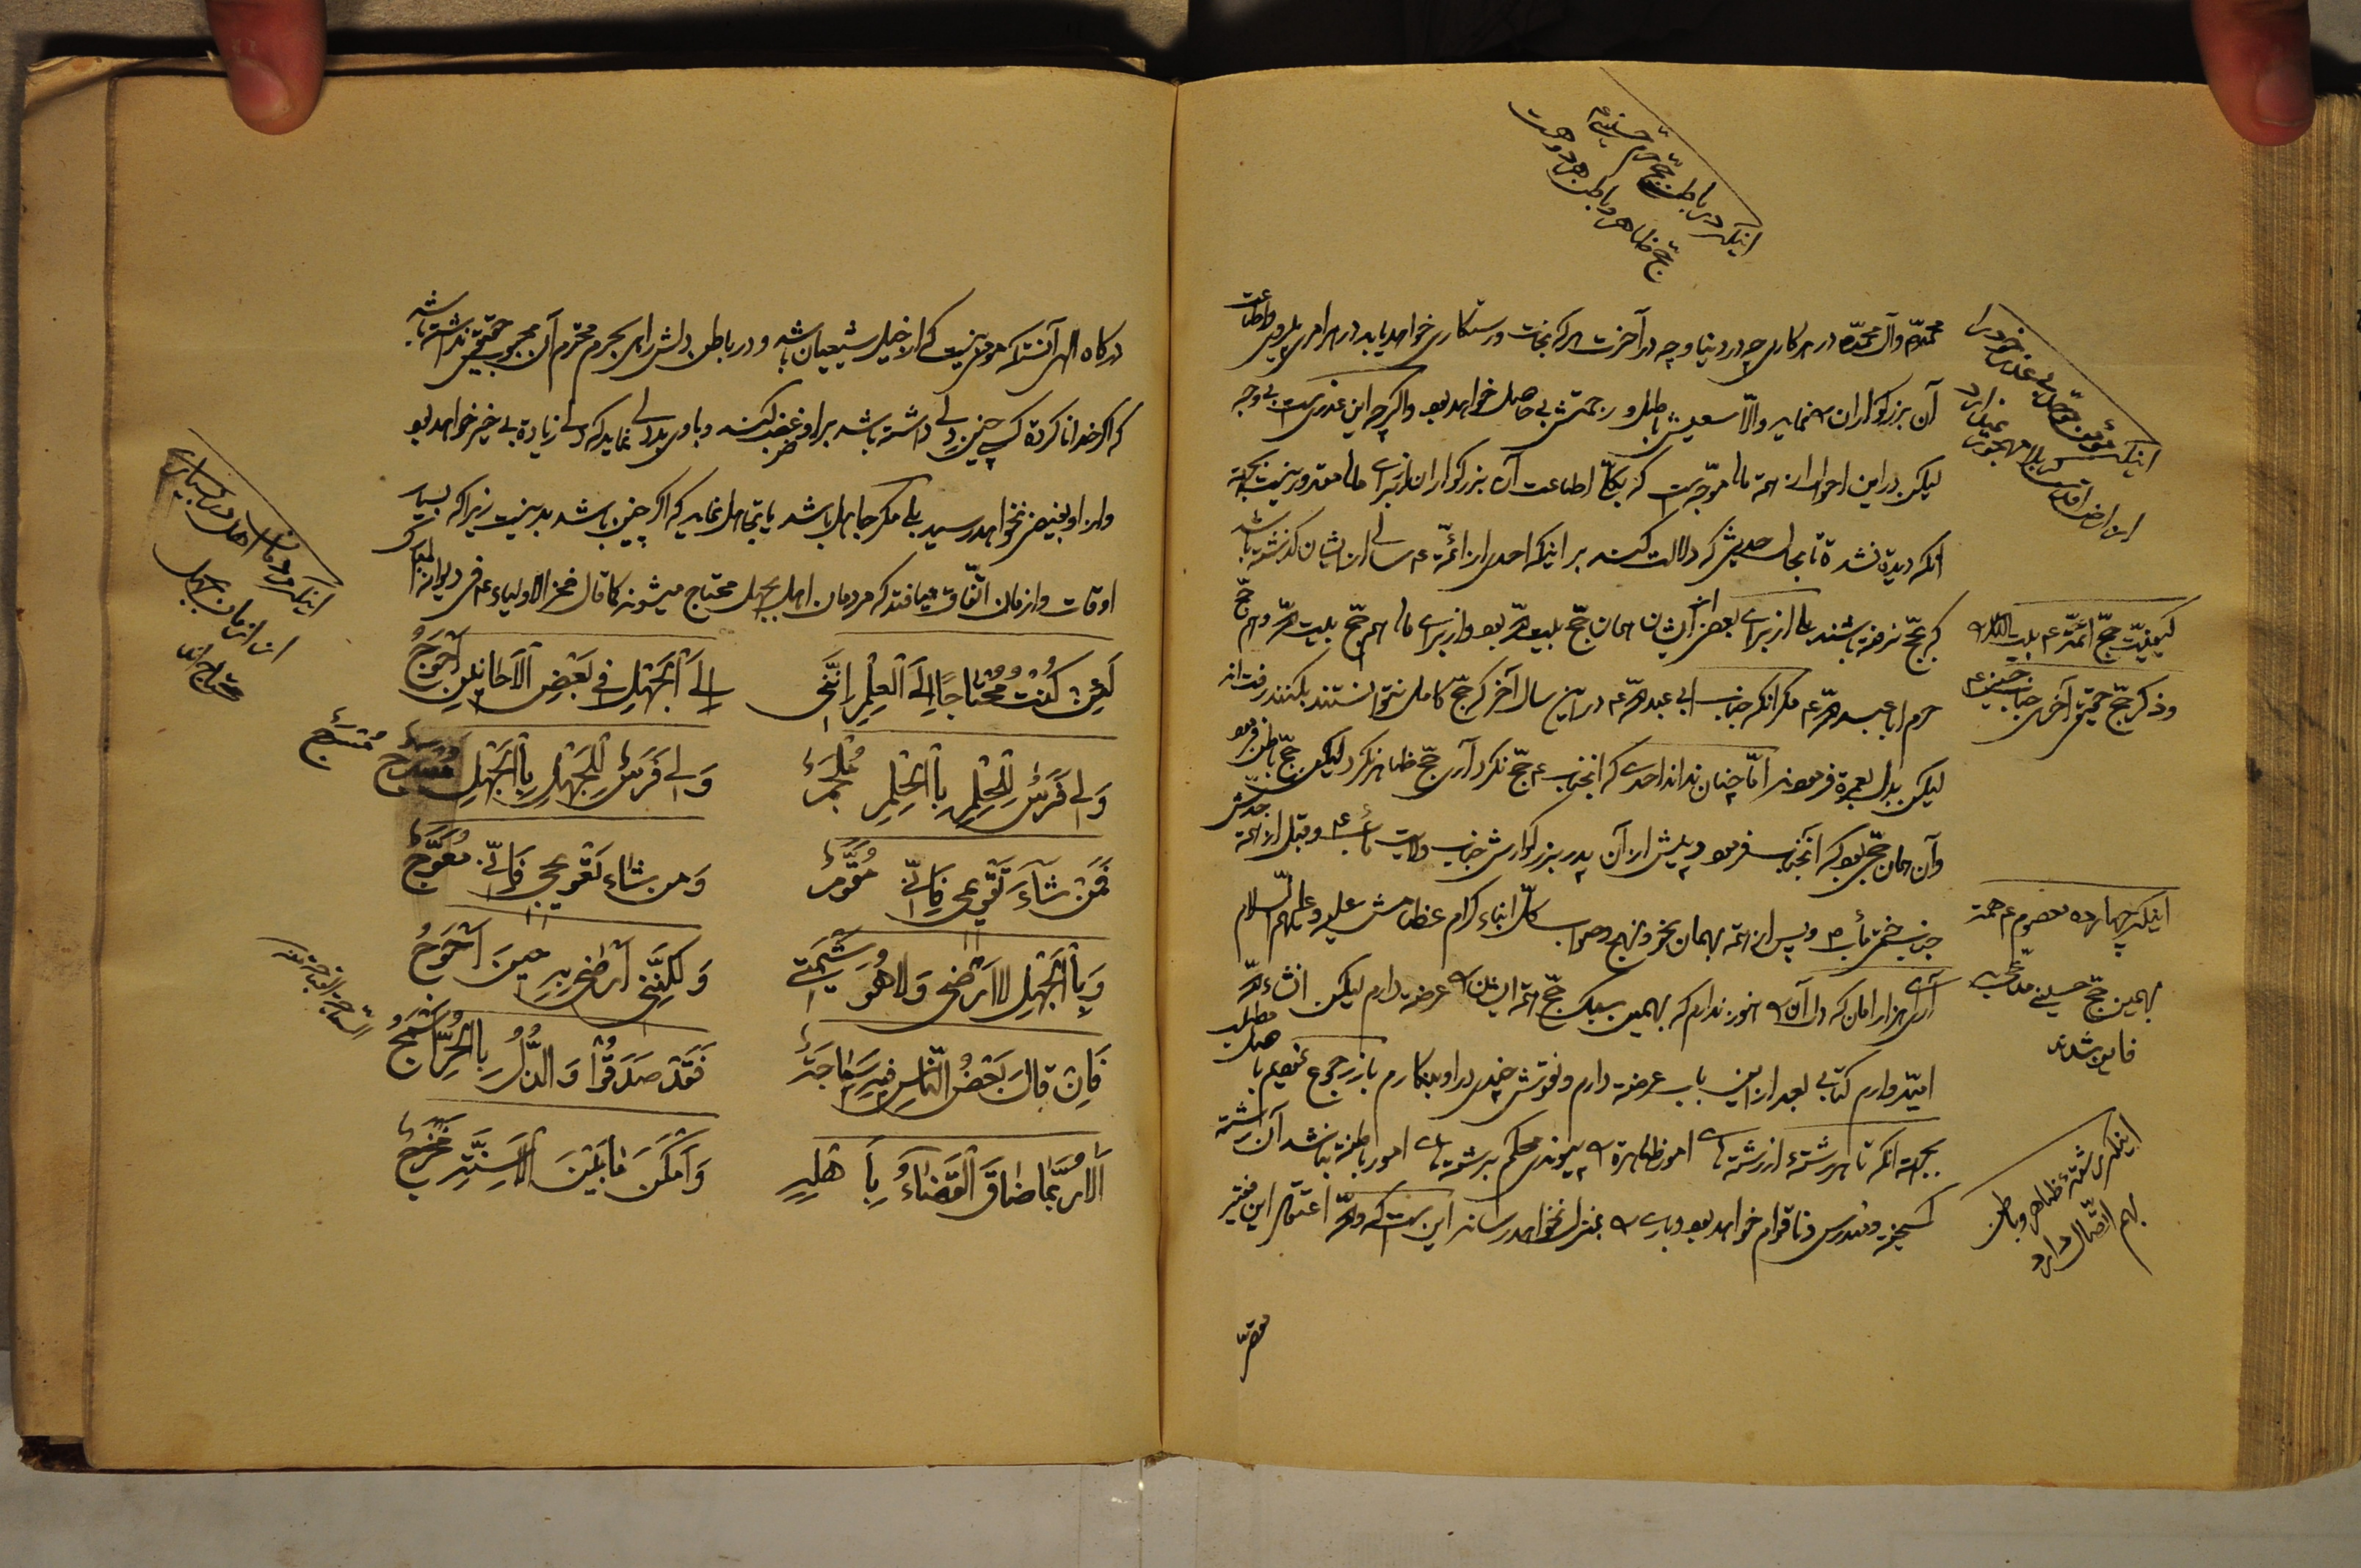 اینکه در باطن حجّ حرم حسینی؏
حجّ ظاهر و باطن هر دو هست
محمّد و آل محمّد در هر کاری چه در دنیا و چه در آخرت هر که نجات و رستکاری خواهد باید در هر امری پیروی و اطاعت
آن بزرکواران را نماید والّا سعیش باطل و رحمتش بی حاصل خواهد بود و اکر چه این عذریست بی وجه
لیکن در این احوال از همهٔ ما موجّه است که بکلّ اطاعت آن بزرکواران از برای ما مقدور نیست بجهة
آنکه دیده نشده تا بحال حدیثی که دلالت کند بر اینکه احدی از ائمّه ؏ سالی از ایشان کذشته باشد
که بحجّ نرفته باشند امّا از برای بعض از ایشان همان حجّ بیت الله بود و از برای ما هم حجّ بیت الله و هم حجّ
حرم ابا عبد الله ؏ مکر آنکه جناب ابی عبد الله ؏ در این سال آخر که حجّ کامل نتوانستند بکنند رفت از
لیکن بدل بعمره فرمودند امّا چنان نداند احدی که آنجناب ؏ حجّ نکرد آری حجّ ظاهر نکرد لیکن حجّ باطن فرمود
و آن همان حجّی بود که آنجناب فرمود و پیش از آن پدر بزرکوارش جناب ولایت مآب ؏ و قبل از همه جدّش
جناب ختمی مآب ص و پس از همه بهمان نحو و نهج وصواب کلّ ابناء کرام عظامش علیه و علیهم السّلام
آری هزار امان که دل آن را هنوز ندارم که بهمین سبک حجّ همهٔ ایشان را عرضه دارم لیکن انشاء الله
امیّدوارم کتابی بعد از این باب عرضه دارم و نقوش چندی در او بنکارم باز رجوع نمودیم باصل مطلب
بجهة آنکه تا هر رشتهٔ از رشته های امور ظاهره را پیوندی محکم برشته های امور باطنه نباشد آن رشته
کسیخته و مندرس و ناقوام خواهد بود و باری را بمنزل نخواهد رسانید این است که والله اعتقاد این فقیر
اینکه مؤمن موحّد بی عذر خود را
از ارض اقدس کربلا مهجور نمیدارد
کیفیّت حجّ ائمّه ؏ بیت الله را
و ذکر حجّ حقیقی آخری جناب حسین ؏
اینکه چهارده معصوم ؏ همه
بهمین حجّ حسینی مدّعی به
فایز شدند
اینکه رشتهٔ ظاهر و باطن
بهم اتّصال دارد
مقرّ
درکاه الهی آنست که مؤمن نیست که از خیل شیعیان باشد و در باطن دلش راهی بحرم محترم آن محبوب حقیقی نداشته باشد
که اکر خدا نا کرده کسی چنین دلی داشته باشد بر او غضب کند و با وی بد دلی نماید که دلی زیاده بی خیر خواهد بود
و از او بغیر ضرر نخواهد رسید بلی مکر جاهل باشد یا تجاهل نماید که اکر چنین باشد بد نیست زیرا که بسیار
اوقات و ازمان اتّفاق میافتد که مردمان اهل بجهل محتاج میشوند کما قال فخر الاولیاء ؏ فی دیوانه المبارک
لَئِنْ كُنْتُ مُحْتٰاجًا اِلَی الْعِلْمِ اِنَّنی اِلَی الْجَهْلِ فی بَعْضِ الْاَحٰایینِ اَحْوَجُ
وَلی فَرَسٌ لِلْحِلْمِ بِالْحِلْمِ مُلْجَمٌ وَلی فَرَسٌ لِلْجَهْلِ بِالْجَهْلِ مُسْرَجٌ
فَمَنْ شٰآءَ تَقْویمی فَاِنّی مُقَوَّمٌ وَمَن شاء تَعْویجی فَاِنّی مُعَوَّجٌ
وَبِالْجَهْلِ لا اَرْضٰی وَلا هُوَ شیمَتی وَلٰكِنَّنی اَرْضٰی بِهِ حینَ اَحْوَجُ
فَاِنْ قٰالَ بَعْضُ النّٰاسِ فیهِ سَمٰاجَةٌ فَقَدْ صَدَقُوْا وَالذُّلُّ بِالْحُرِّ اَسْمَجُ
اَلا رُبَّمٰا ضٰاقَ الْقَضٰآءُ بِاَهْلِهِ وَاَمْكَنَ مٰا بَیْنَ الْاَسِنَّةِ مَخْرَجٌ
اینکه مردمان اهل در بسیاری
از ازمان بجهل
محتاج اند
مُسْرَجٌ
السّماجة القباحة